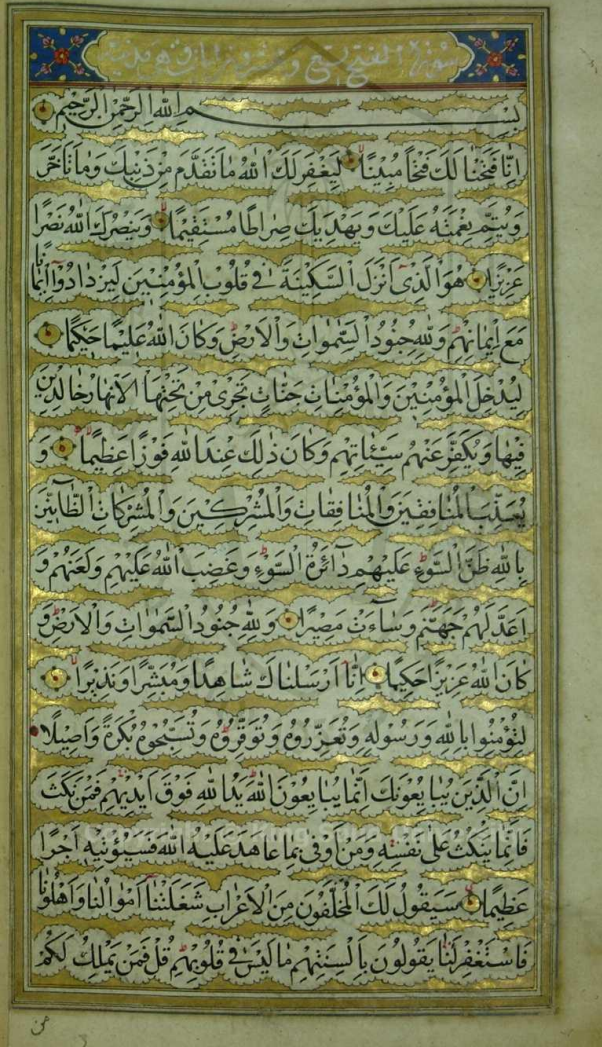 سورة الفتح تسع وعشرون آيات وهي مدنية
بِسْمِ اللهِ الرَّحْمٰنِ الرَّحِيمِ
اِنَّا فَتَحْنَا لَكَ فَتْحًا مُبِينًا لِيَغْفِرَ لَكَ اللهُ مَا تَقَدَّمَ مِنْ ذَنْبِكَ وَمَا تَأَخَّرَ
وَيُتِمَّ نِعْمَتَهُ عَلَيْكَ وَيَهْدِيَكَ صِرَاطًا مُسْتَقِيمًا وَيَنْصُرَكَ اللهُ نَصْرًا
عَزِيزًا هُوَ الَّذِى اَنْزَلَ السَّكِينَةَ فِى قُلُوبِ الْمُؤْمِنِينَ لِيَزْدَادُوٓا اِيمَانًا
مَعَ اِيمَانِهِمْ وَلِلّٰهِ جُنُودُ السَّمٰوَاتِ وَالْاَرْضِ وَكَانَ اللهُ عَلِيمًا حَكِيمًا
لِيُدْخِلَ الْمُؤْمِنِينَ وَالْمُؤْمِنَاتِ جَنَّاتٍ تَجْرِى مِنْ تَحْتِهَا الْاَنْهَارُ خَالِدِينَ
فِيهَا وَيُكَفِّرَ عَنْهُمْ سَيِّئَاتِهِمْ وَكَانَ ذٰلِكَ عِنْدَ اللهِ فَوْزًا عَظِيمًا وَ
يُعَذِّبَ الْمُنَافِقِينَ وَالْمُنَافِقَاتِ وَالْمُشْرِكِينَ وَالْمُشْرِكَاتِ الظَّآنِّينَ
بِاللهِ ظَنَّ السَّوْءِ عَلَيْهِمْ دَآئِرَةُ السَّوْءِ وَغَضِبَ اللهُ عَلَيْهِمْ وَلَعَنَهُمْ وَ
اَعَدَّ لَهُمْ جَهَنَّمَ وَسَآءَتْ مَصِيرًا وَلِلّٰهِ جُنُودُ السَّمٰوَاتِ وَالْاَرْضِ وَ
كَانَ اللهُ عَزِيزًا حَكِيمًا اِنَّآ اَرْسَلْنَاكَ شَاهِدًا وَمُبَشِّرًا وَنَذِيرًا
لِتُؤْمِنُوا بِاللهِ وَرَسُولِهِ وَتُعَزِّرُوهُ وَتُوَقِّرُوهُ وَتُسَبِّحُوهُ بُكْرَةً وَاَصِيلًا
اِنَّ الَّذِينَ يُبَايِعُونَكَ اِنَّمَا يُبَايِعُونَ اللهَ يَدُ اللهِ فَوْقَ اَيْدِيهِمْ فَمَنْ نَكَثَ
فَاِنَّمَا يَنْكُثُ عَلٰى نَفْسِهِ وَمَنْ اَوْفٰى بِمَا عَاهَدَ عَلَيْهُ اللهَ فَسَيُؤْتِيهِ اَجْرًا
عَظِيمًا سَيَقُولُ لَكَ الْمُخَلَّفُونَ مِنَ الْاَعْرَابِ شَغَلَتْنَآ اَمْوَالُنَا وَاَهْلُونَا
فَاسْتَغْفِرْ لَنَا يَقُولُونَ بِاَلْسِنَتِهِمْ مَا لَيْسَ فِى قُلُوبِهِمْ قُلْ فَمَنْ يَمْلِكُ لَكُمْ
من